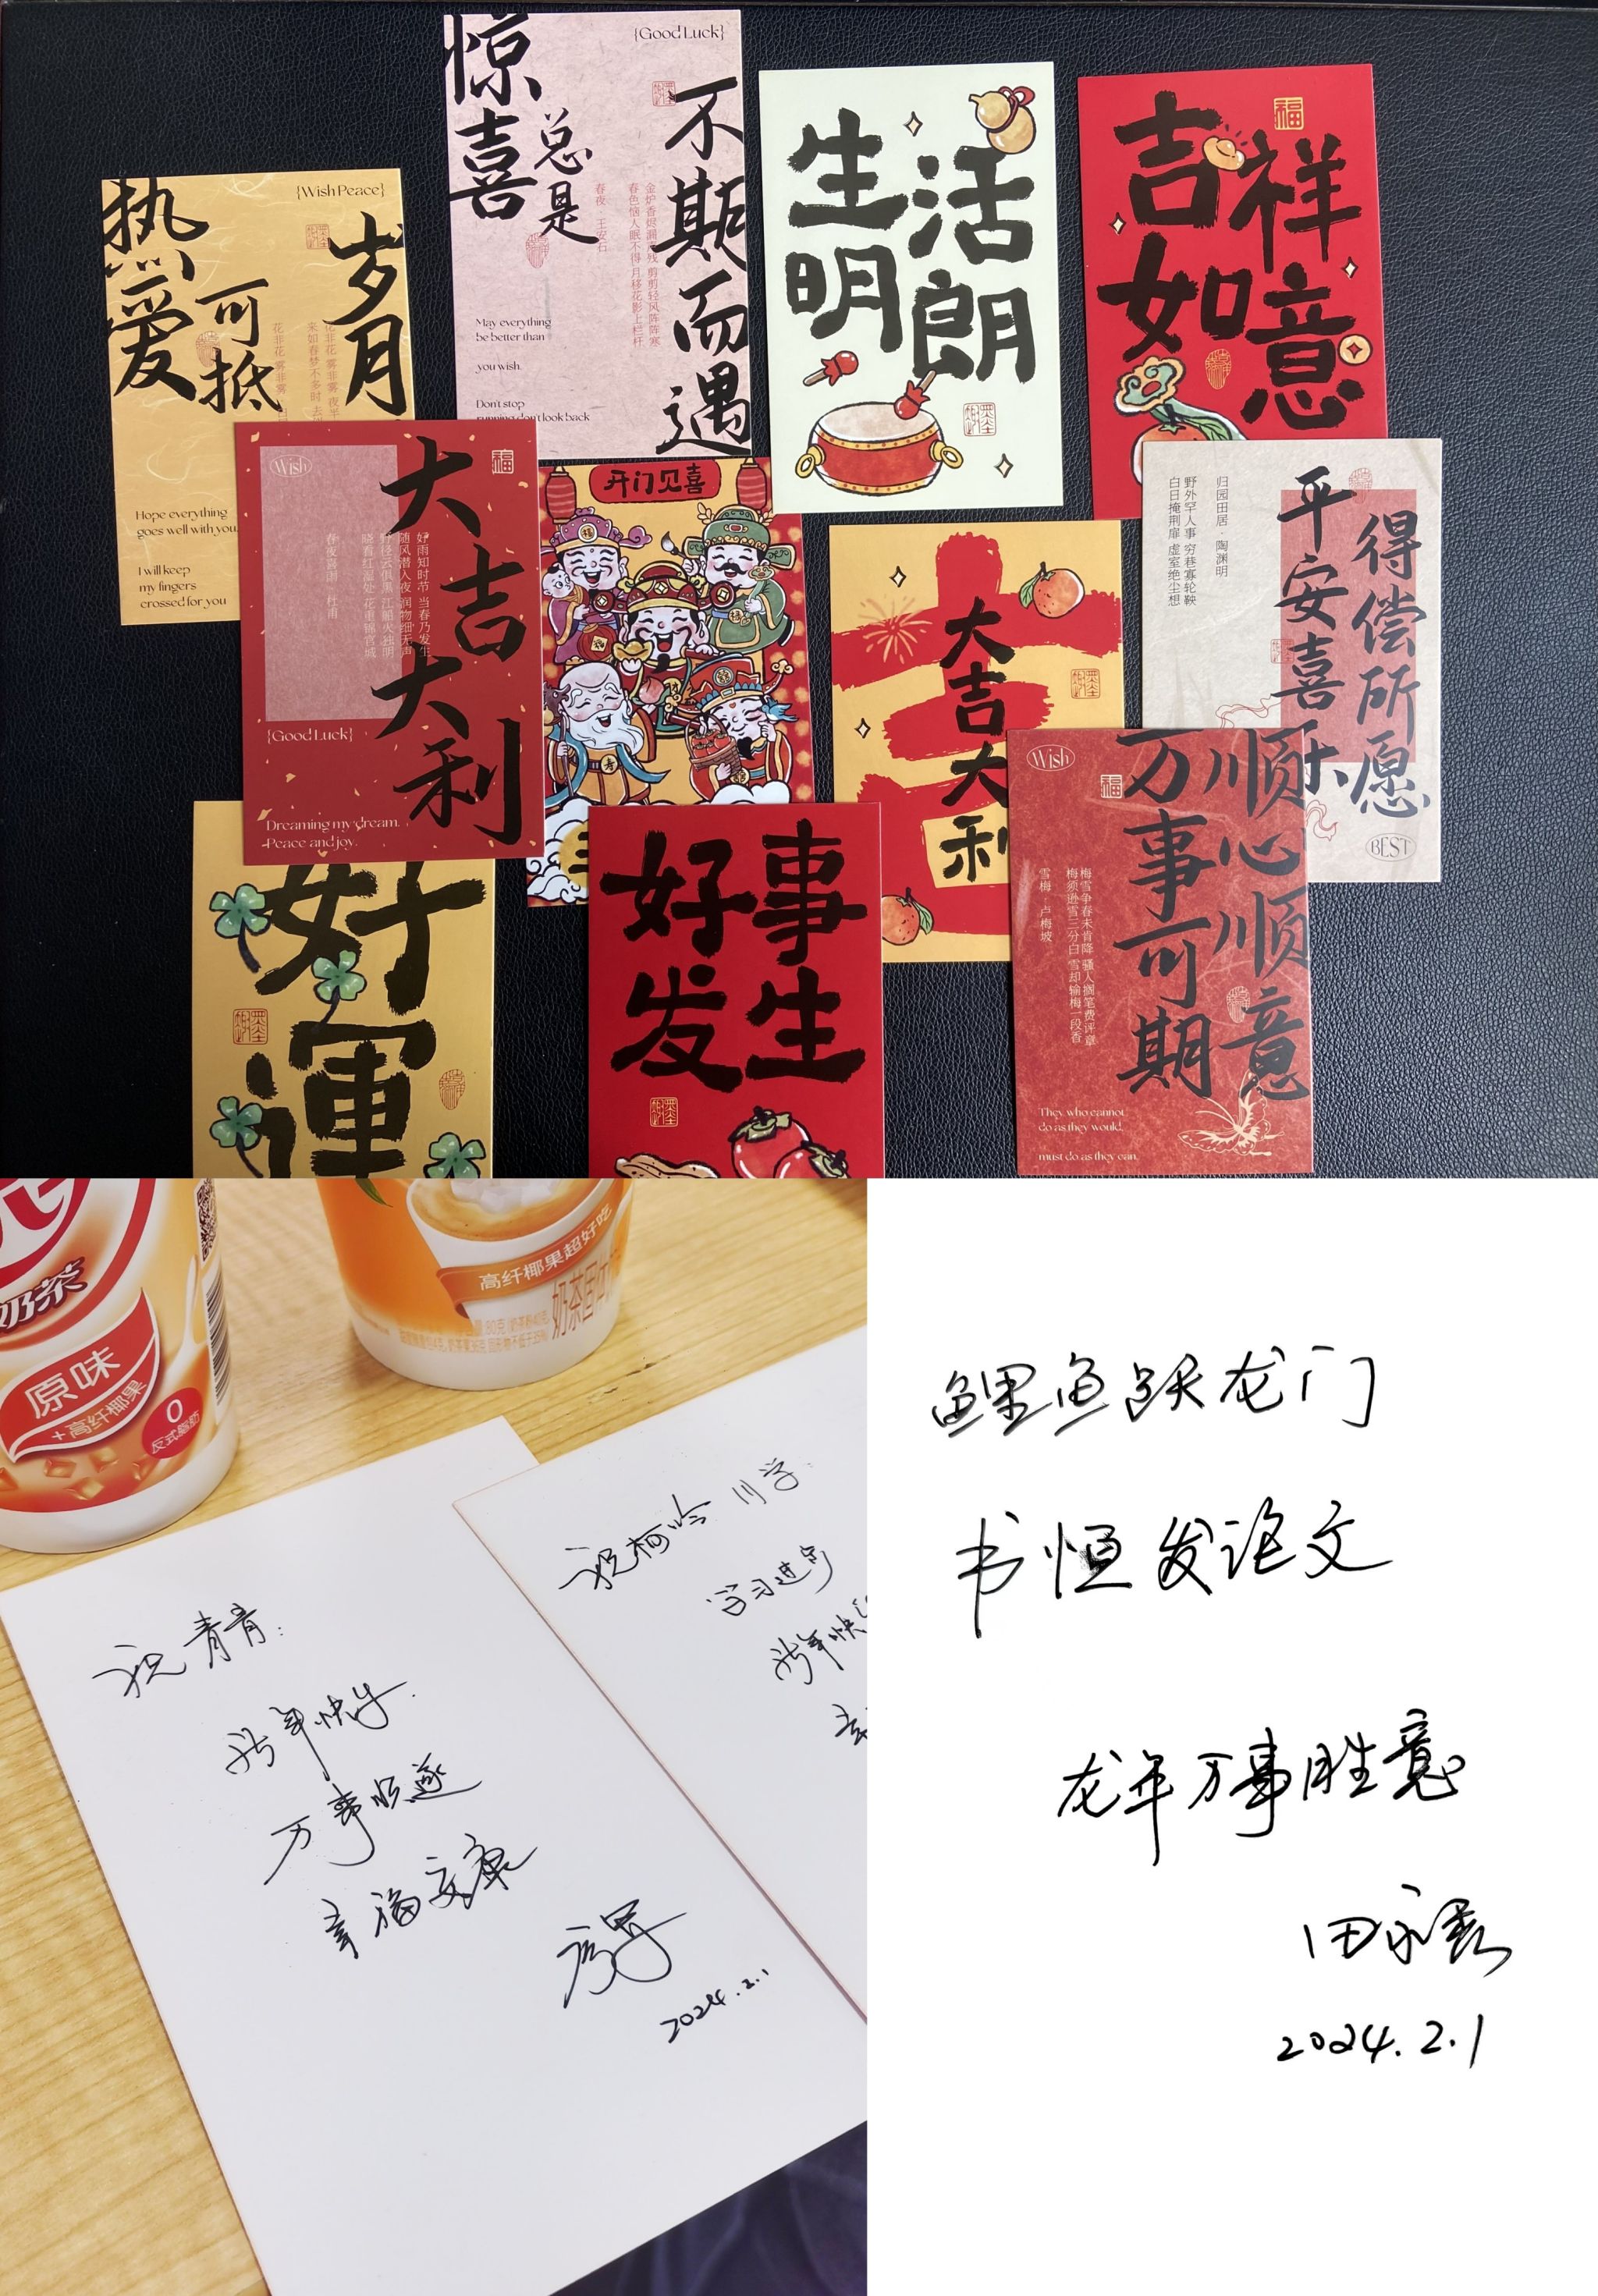 惊喜
总是
不期而遇
{Good Luck}
春夜 王安石
金炉香烬漏声残 剪剪轻风阵阵寒
春色恼人眠不得 月移花影上栏杆
May everything
be better than
you wish.
Don't stop
running don't look back
生活
明朗
福
吉祥
如意
{Wish Peace}
热爱
可抵
岁月
花非花 雾非雾 夜半
来如春梦不多时 去
花非花 雾非雾
Hope everything
goes well with you.
I will keep
my fingers
crossed for you
Wish
福
大吉
大利
好雨知时节 当春乃发生
随风潜入夜 润物细无声
野径云俱黑 江船火独明
晓看红湿处 花重锦官城
春夜喜雨 杜甫
{Good Luck}
Dreaming my dream.
Peace and joy.
开门见喜
大吉大利
得偿所愿
平安喜乐
归园田居·陶渊明
野外罕人事 穷巷寡轮鞅
白日掩荆扉 虚室绝尘想
BEST
好運
好事
发生
Wish
福
顺心顺意
万事可期
梅雪争春未肯降 骚人搁笔费评章
梅须逊雪三分白 雪却输梅一段香
雪梅·卢梅坡
They who cannot
do as they would,
must do as they can.
奶茶
原味
+高纤椰果
0
反式脂肪
高纤椰果超好吃
奶茶固体
祝青青:
新年快乐
万事顺遂
幸福安康
2024.2.1
祝柯吟同学:
学习进步
新年快
鲤鱼跃龙门
书恒发论文
龙年万事胜意
田永秀
2024.2.1